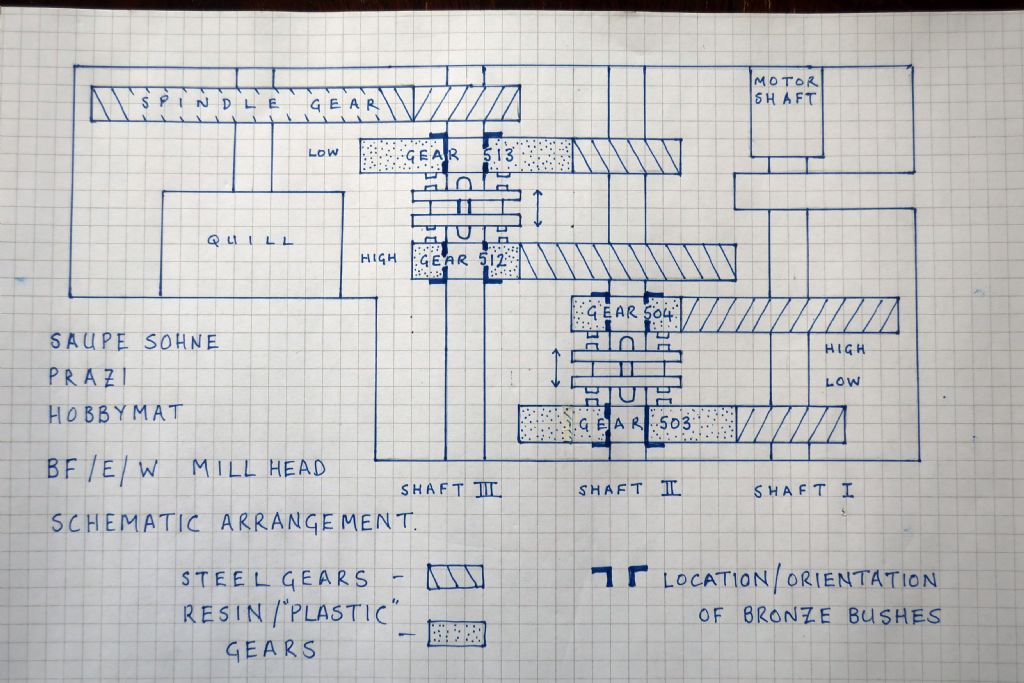 MOTOR
SHAFT
SPINDLE GEAR
LOW
GEAR 513
QUILL
HIGH
GEAR 512
GEAR 504
HIGH
LOW
GEAR 503
SAUPE SOHNE
PRAZI
HOBBYMAT
BF/E/W MILL HEAD
SCHEMATIC ARRANGEMENT.
SHAFT III
SHAFT II
SHAFT I
STEEL GEARS -
RESIN/"PLASTIC" -
GEARS
LOCATION/ORIENTATION
OF BRONZE BUSHES